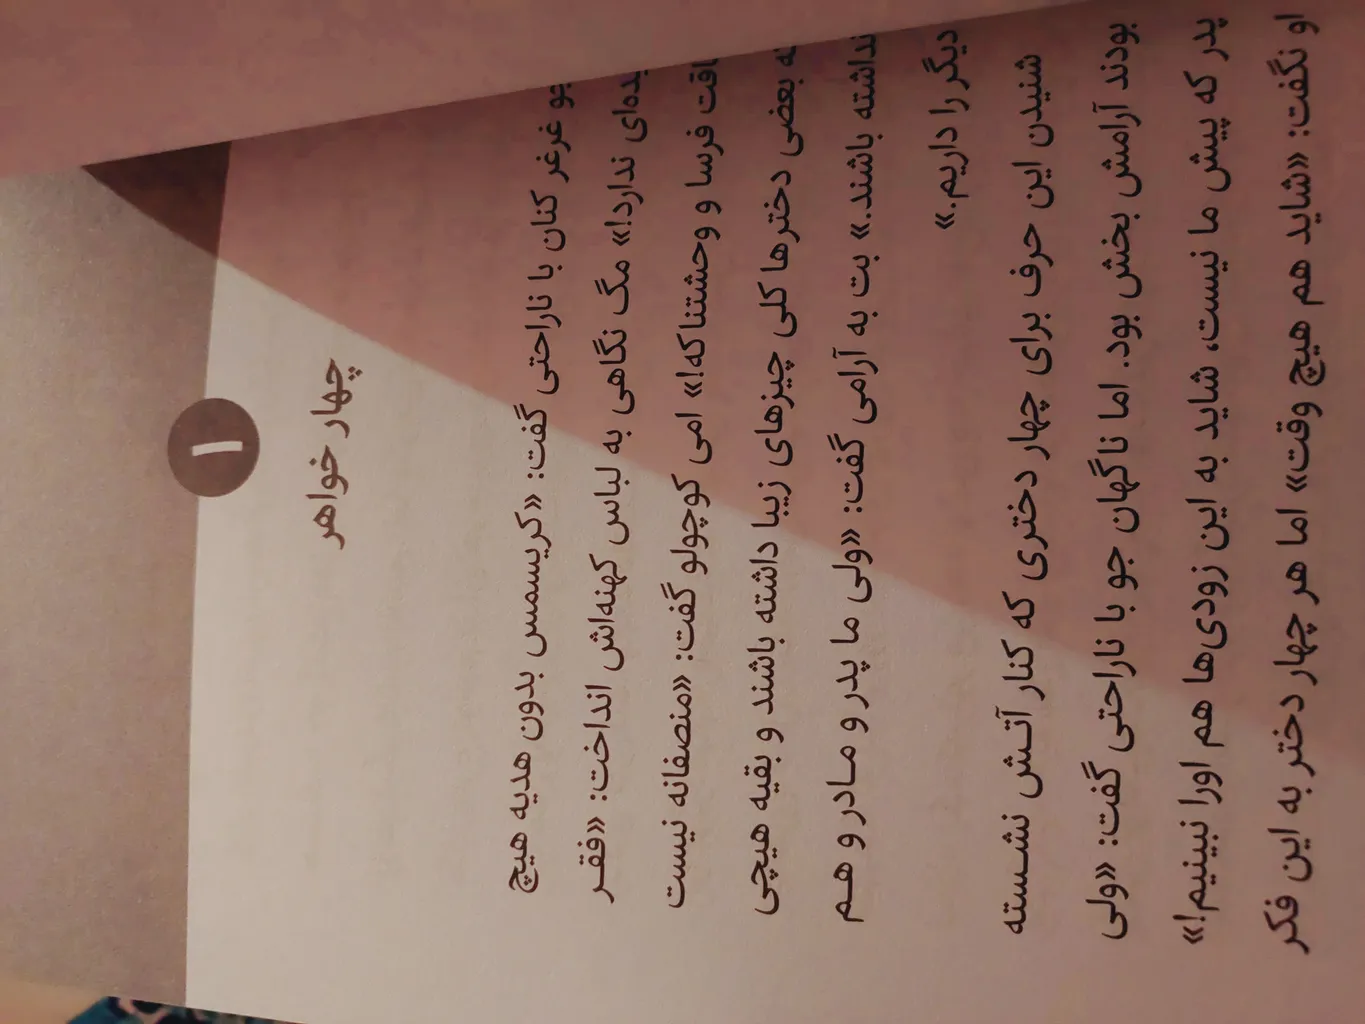 ۱
چهار خواهر
جو غرغر کنان با ناراحتی گفت: «کریسمس بدون هدیه هیچ
ندارد!» مگ نگاهی به لباس کهنه‌اش انداخت: «فقر
فرسا و وحشتناکه!» امی کوچولو گفت: «منصفانه نیست
بعضی دخترها کلی چیزهای زیبا داشته باشند و بقیه هیچی
نداشته باشند.» بت به آرامی گفت: «ولی ما پدر و مادر و هم
دیگر را داریم.»
شنیدن این حرف برای چهار دختری که کنار آتش نشسته
بودند آرامش بخش بود. اما ناگهان جو با ناراحتی گفت: «ولی
پدر که پیش ما نیست، شاید به این زودی‌ها هم اورا نبینیم!»
او نگفت: «شاید هم هیچ وقت» اما هر چهار دختر به این فکر